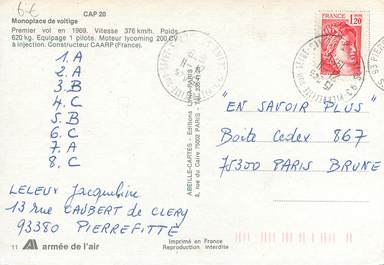 6-6
CAP 20
Monoplace de voltige
Premier vol en 1969. Vitesse 376 km/h. Poids
620 kg. Equipage 1 pilote. Moteur lycoming 200 CV
à injection. Constructeur CAARP (France).
1. A
2. A
3. B
4. C
5. B
6. C
7. A
8. C
LELEUX Jacqueline
13 rue CAUBERT de CLERY
93380 PIERREFITTE
11 armée de l'air
ABEILLE-CARTES - Editions LYNA-PARIS
8, rue du Caire 75002 PARIS
Imprimé en France
Reproduction interdite
1,20
"EN SAVOIR PLUS"
Boite Cedex 867
75300 PARIS BRUNE